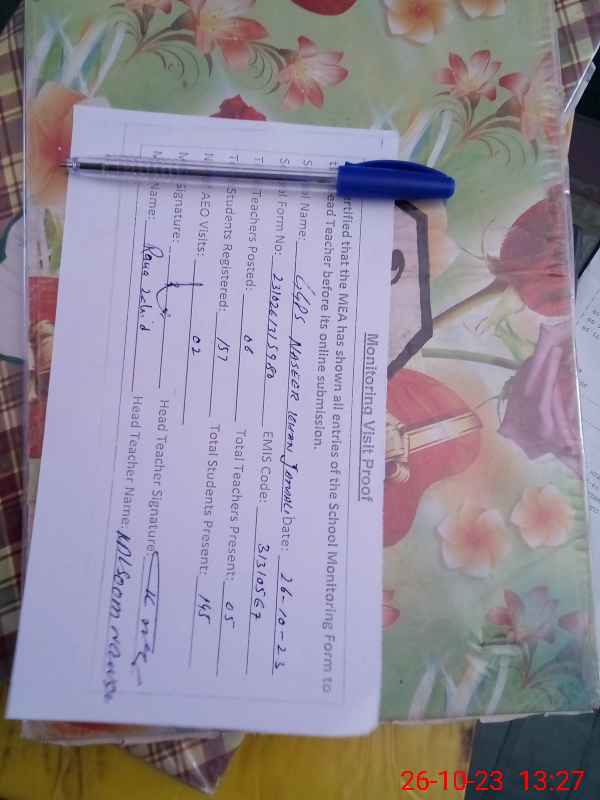 Monitoring Visit Proof
ertified that the MEA has shown all entries of the School Monitoring Form to
ead Teacher before its online submission.
Name: GGPS NASEER KHAN Date: 26-10-23
Form No: EMIS Code: 31310567
Teachers Posted: 06 Total Teachers Present: 05
Students Registered: 157 Total Students Present: 145
AEO Visits: 02
Signature: Head Teacher Signature:
Name: Rana Zahid Head Teacher Name:
26-10-23 13:27